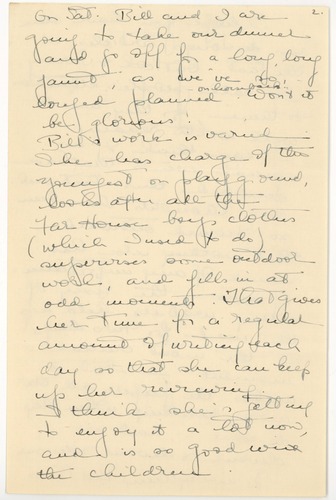 2.
On Sat. Bill and I are
going to take our dinner
and go off for a long, long
jaunt, as we've so
longed planned on horseback. Won't it
be glorious!
Bill's work is varied
She has charge of the
youngest on playground,
looks after all the
Far House boys' clothes
(which I used to do)
supervises some outdoor
work, and fills in at
odd moments. That gives
her time for a regular
amount of writing each
day so that she can keep
up her reviewing.
I think she's getting
to enjoy it a lot now,
and is so good with
the children.